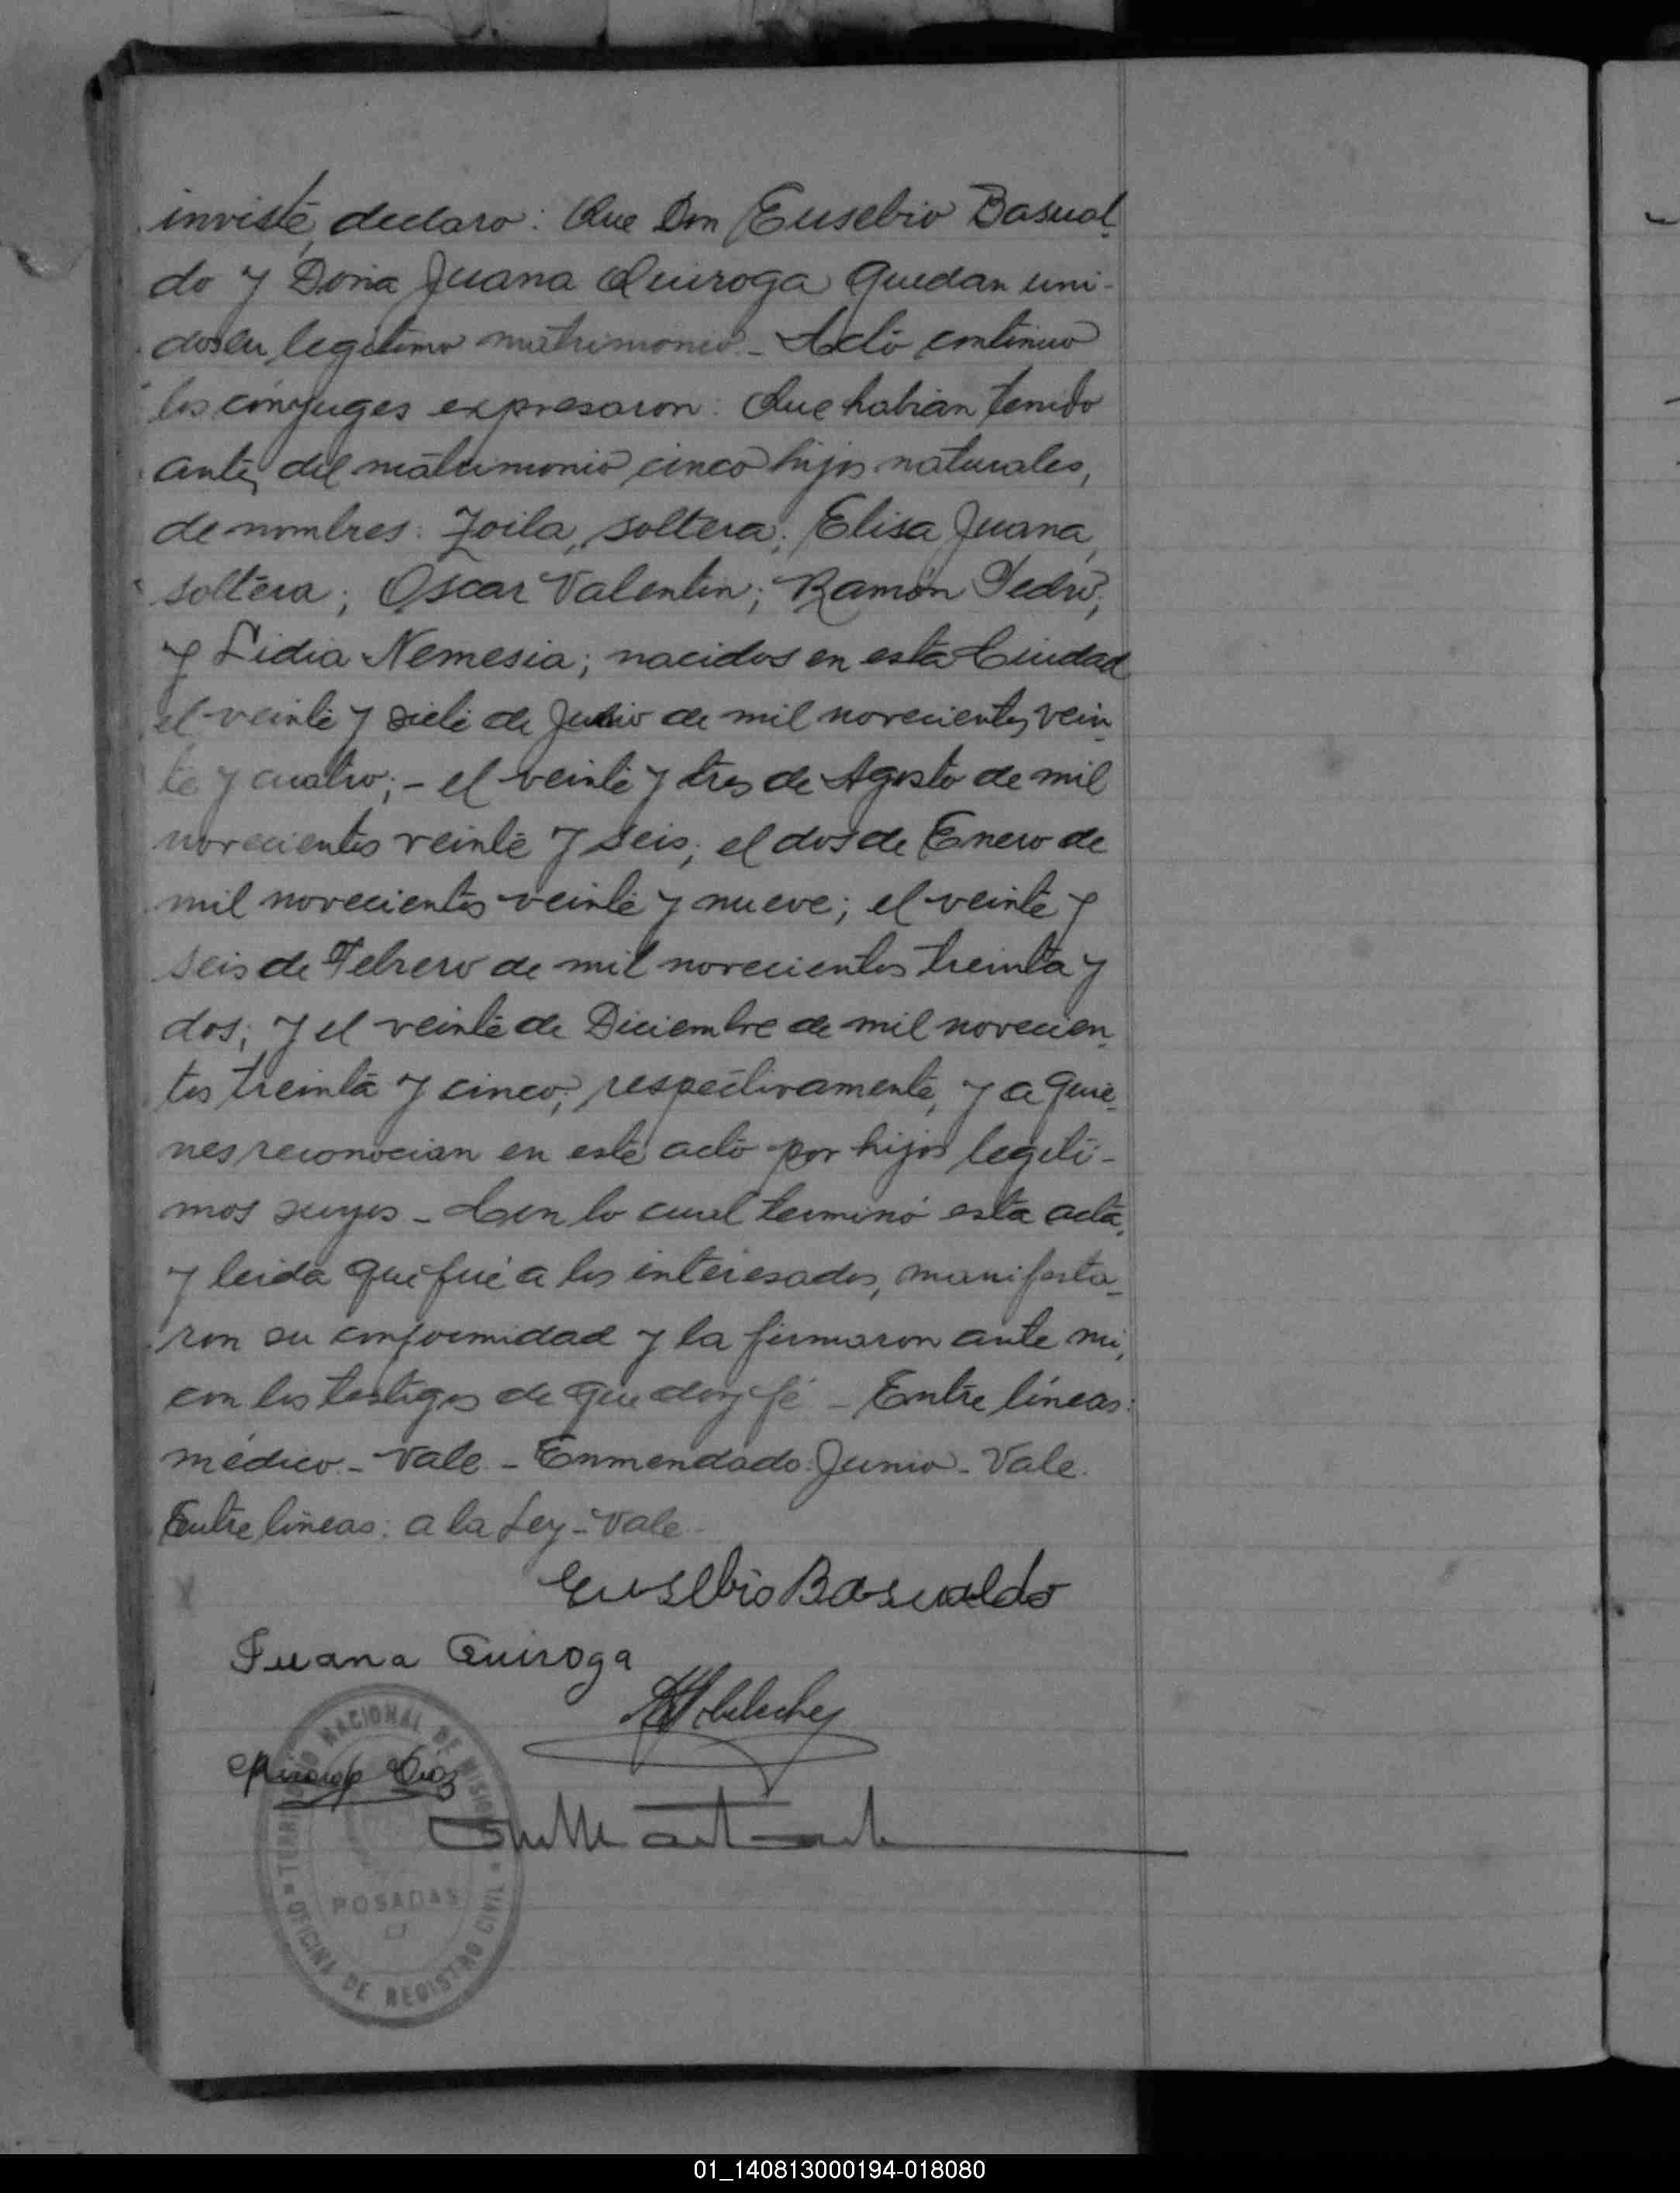 inviste, declaro: Que Don Eusebio Basual-
do y Doña Juana Quiroga quedan uni-
dos en legitimo matrimonio - Acto continuo
los cónyuges expresaron: Que habian tenido
antes del matrimonio cinco hijos naturales,
de nombres: Zoila, soltera; Elisa Juana,
soltera; Oscar Valentin; Ramón Pedro;
y Lidia Nemesia; nacidos en esta Ciudad
el veinte y siete de Junio de mil novecientos vein-
te y cuatro; - el veinte y tres de Agosto de mil
novecientos veinte y seis; el dos de Enero de
mil novecientos veinte y nueve; el veinte y
seis de Febrero de mil novecientos treinta y
dos; y el veinte de Diciembre de mil novecien-
tos treinta y cinco; respectivamente, y a quie-
nes reconocian en este acto por hijos legiti-
mos suyos - Con lo cual terminó esta acta,
y leida que fué a los interesados, manifesta-
ron su conformidad y la firmaron ante mi,
con los testigos de que doy fé - Entre líneas:
médico - Vale - Enmendado: Junio - Vale.
Entre líneas: a la Ley - Vale -
Eusebio Basualdo
Juana Quiroga
TERRITORIO NACIONAL DE MISIONES
POSADAS
OFICINA DE REGISTRO CIVIL
01_140813000194-018080